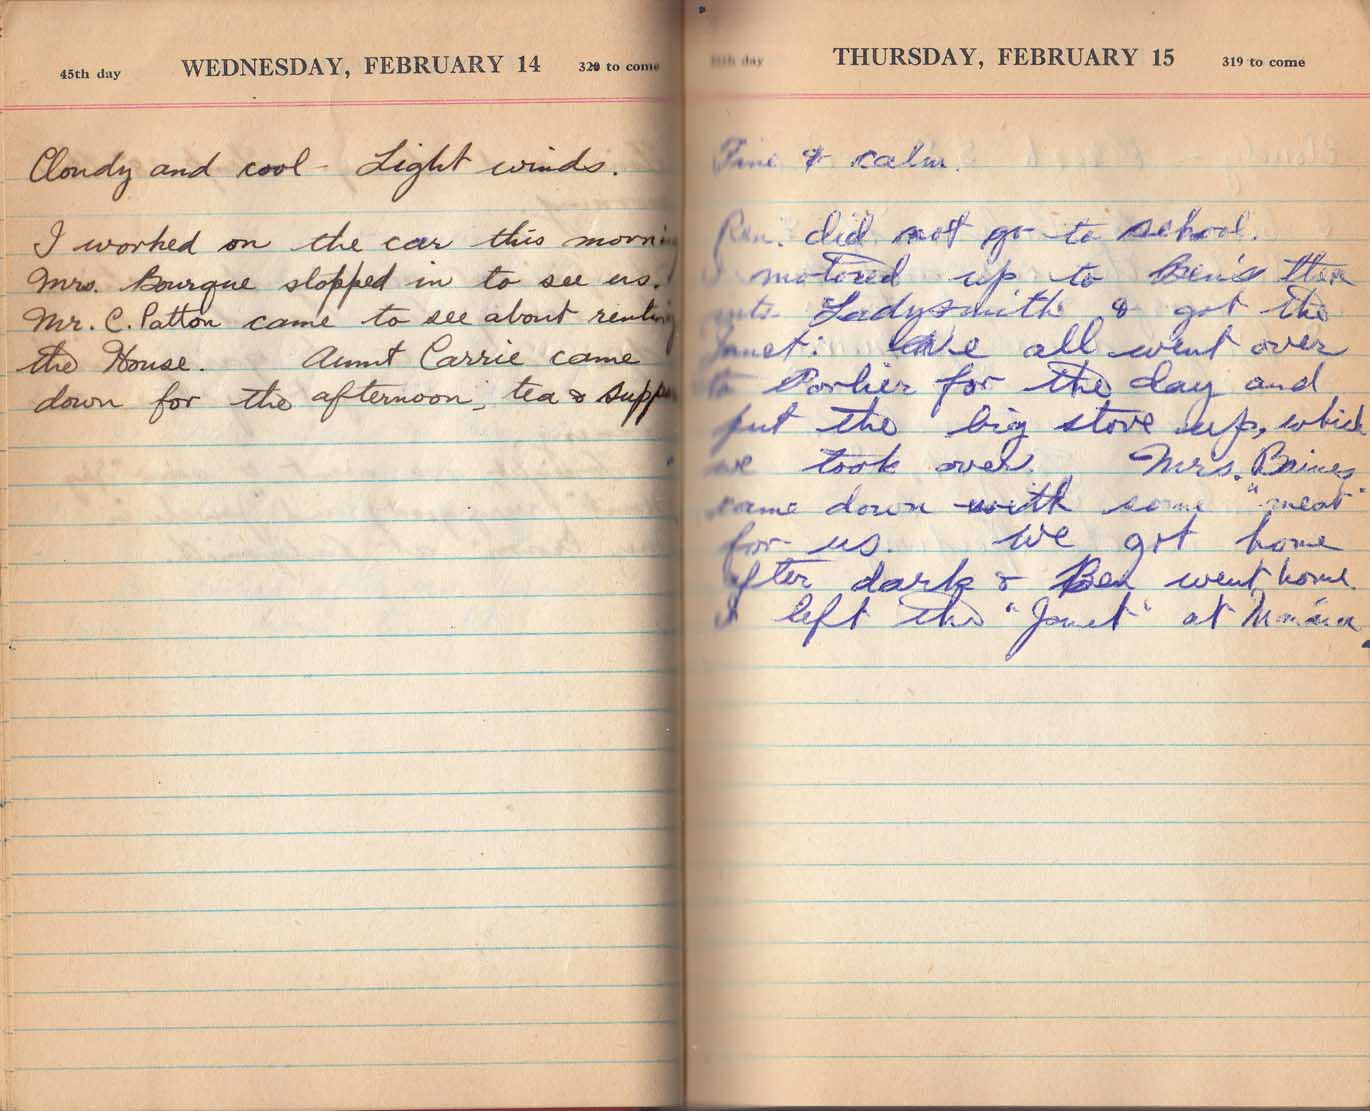 45th day WEDNESDAY, FEBRUARY 14 320 to come
Cloudy and cool - Light winds.
I worked on the car this mornin
Mrs. Bourque stopped in to see us.
Mr. C. Patton came to see about renting
the House. Aunt Carrie came
down for the afternoon, tea & supper
day THURSDAY, FEBRUARY 15 319 to come
Fine & calm.
Ren. did not go to school.
I motored up to Ben's then
into Ladysmith & got the
Janet. We all went over
to Porlier for the day and
put the big stove up, which
we took over. Mrs. Baines
came down with some "meat"
for us. We got home
after dark & Ben went home.
I left the "Janet" at